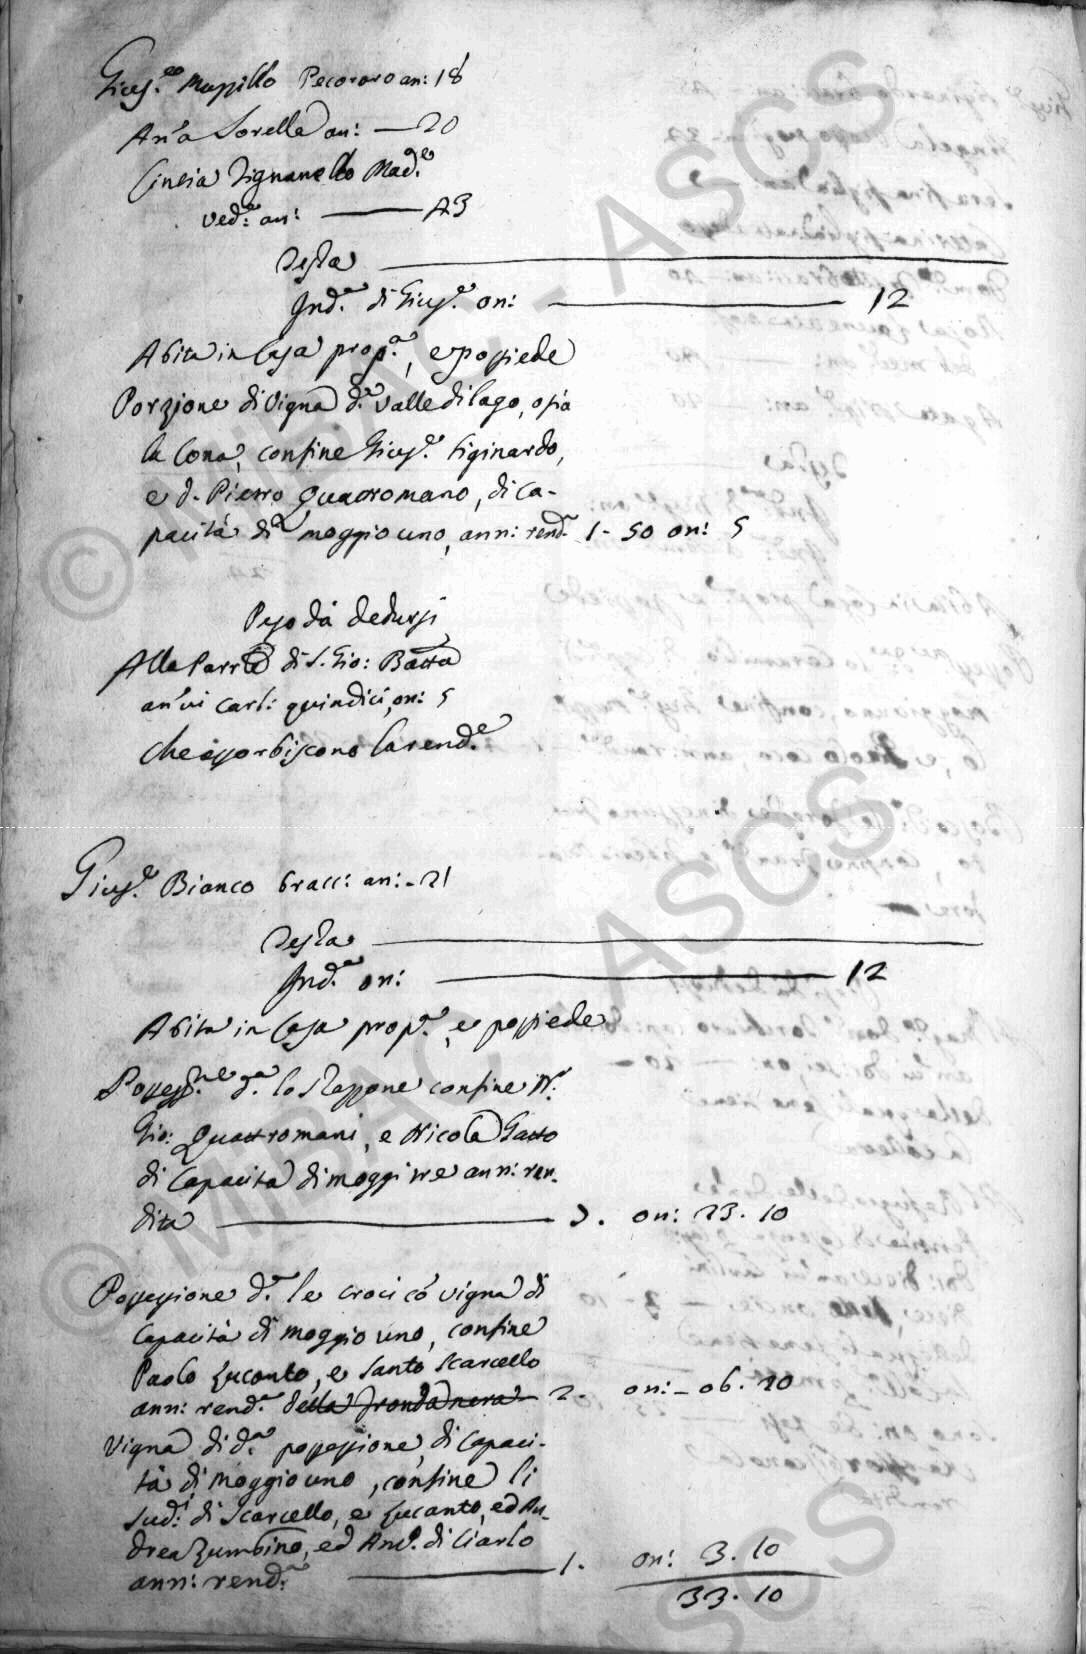 Gius.e Muzzillo Pecoraro an: 18
An'a Sorella an: — 20
Cinzia Tignanello Mad.e
ved.a an: — 43
Testa —
Ind.a di Gius.e on: — 12
Abita in Casa prop.a, e possiede
Porzione di Vigna d.a Valle di lago, o sia
la Cona, confine Gius.e Siginardo,
e d. Pietro Quattromano, di ca-
pacità di moggio uno, ann: rend.a 1-50 on: 5
Peso da dedursi
Alla Parr.a di S. Gio: Batta
an'ui carl: quindici, on: 5
che assorbiscono la rend.a
Gius.e Bianco bracc: an: - 21
Testa —
Ind.a on: — 12
Abita in Casa prop.a, e possiede
Possess.ne d.a lo Stazzone confine N.
Gio: Quattromani, e Nicola Gatto
di Capacità di moggi tre ann: ren-
dita — 7. on: 23. 10
Possessione d.a le croci có vigna di
Capacità di moggio uno, confine
Paolo Zucanto, e Santo Scarcello
ann: rend.a della fronda nera 2- on: - 06. 20
Vigna di d.a possessione, di Capaci-
tà di moggio uno, confine li
sud.i di Scarcello, e Zucanto, ed An-
drea Zumbino, ed Ant.o di Ciarlo
ann: rend.a — 1. on: 3. 10
33. 10
© MIBAC - ASCS
© MIBAC - ASCS
ASCS